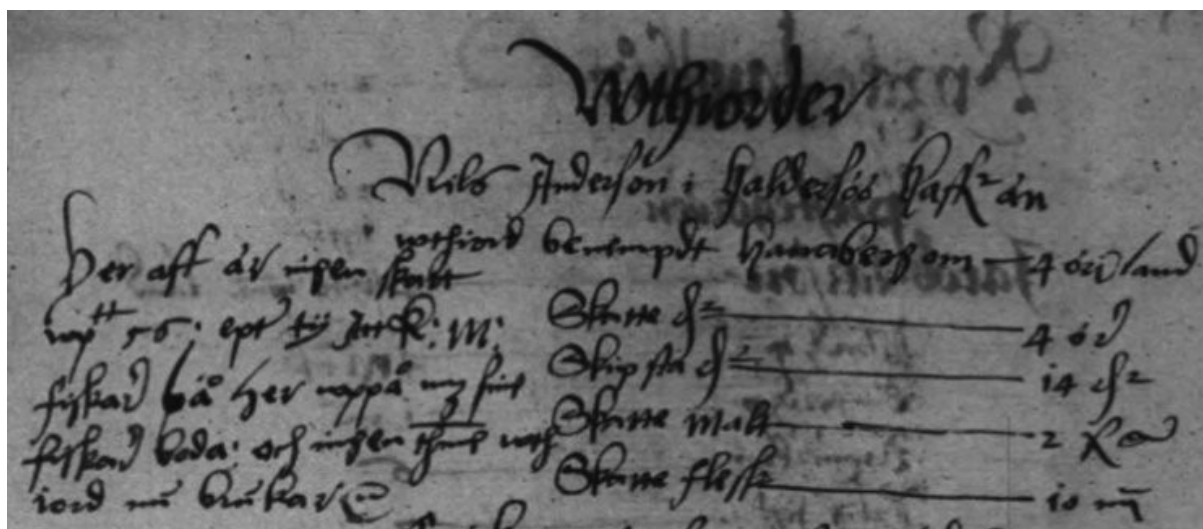 Wthiorder
Nils Anderson i Haldersöö haffr en
wthiord benempdt Hanabergh om — 4 öri land
Skatte ₰r — 4 ör
Skipsta ₰r — 14 ₰r
Skatte Malt — 2
Skatte flesk — 10 m
Her aff är ingen skatt
wptt 56: ept ty Att K: M:
fiskar boo her wppå
fiskar boda: och ingen then wth
iord nu brukar